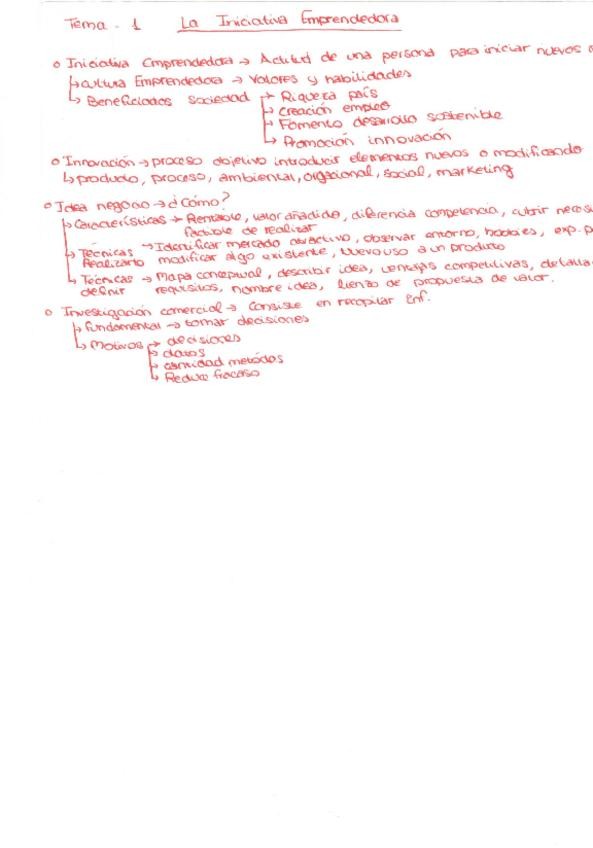 Tema - 1 La Iniciativa Emprendedora
o Iniciativa Emprendedora → Actitud de una persona para iniciar nuevos
↳ cultura Emprendedora → valores y habilidades
↳ Beneficiados sociedad ↳ Riqueza país
↳ creación empleo
↳ Fomento desarrollo sostenible
↳ Promoción innovación
o Innovación → proceso objetivo introducir elementos nuevos o modificando
↳ producto, proceso, ambiental, orgacional, social, marketing
o Idea negocio → ¿Cómo?
↳ características → Rentable, valor añadido, diferencia competencia, cubrir neces
factible de realizar
↳ Técnicas → Identificar mercado atractivo, observar entorno, hobbies, exp. p
Realizarlo modificar algo existente, Nuevo uso a un producto
↳ Técnicas → Mapa conceptual, describir idea, ventajas competitivas, detalla
definir requisitos, nombre idea, lienzo de propuesta de valor.
o Investigación comercial → Consiste en recopilar Inf.
↳ fundamental → tomar decisiones
↳ Motivos ↳ decisiones
↳ datos
↳ cantidad metódos
↳ Reduce fracaso